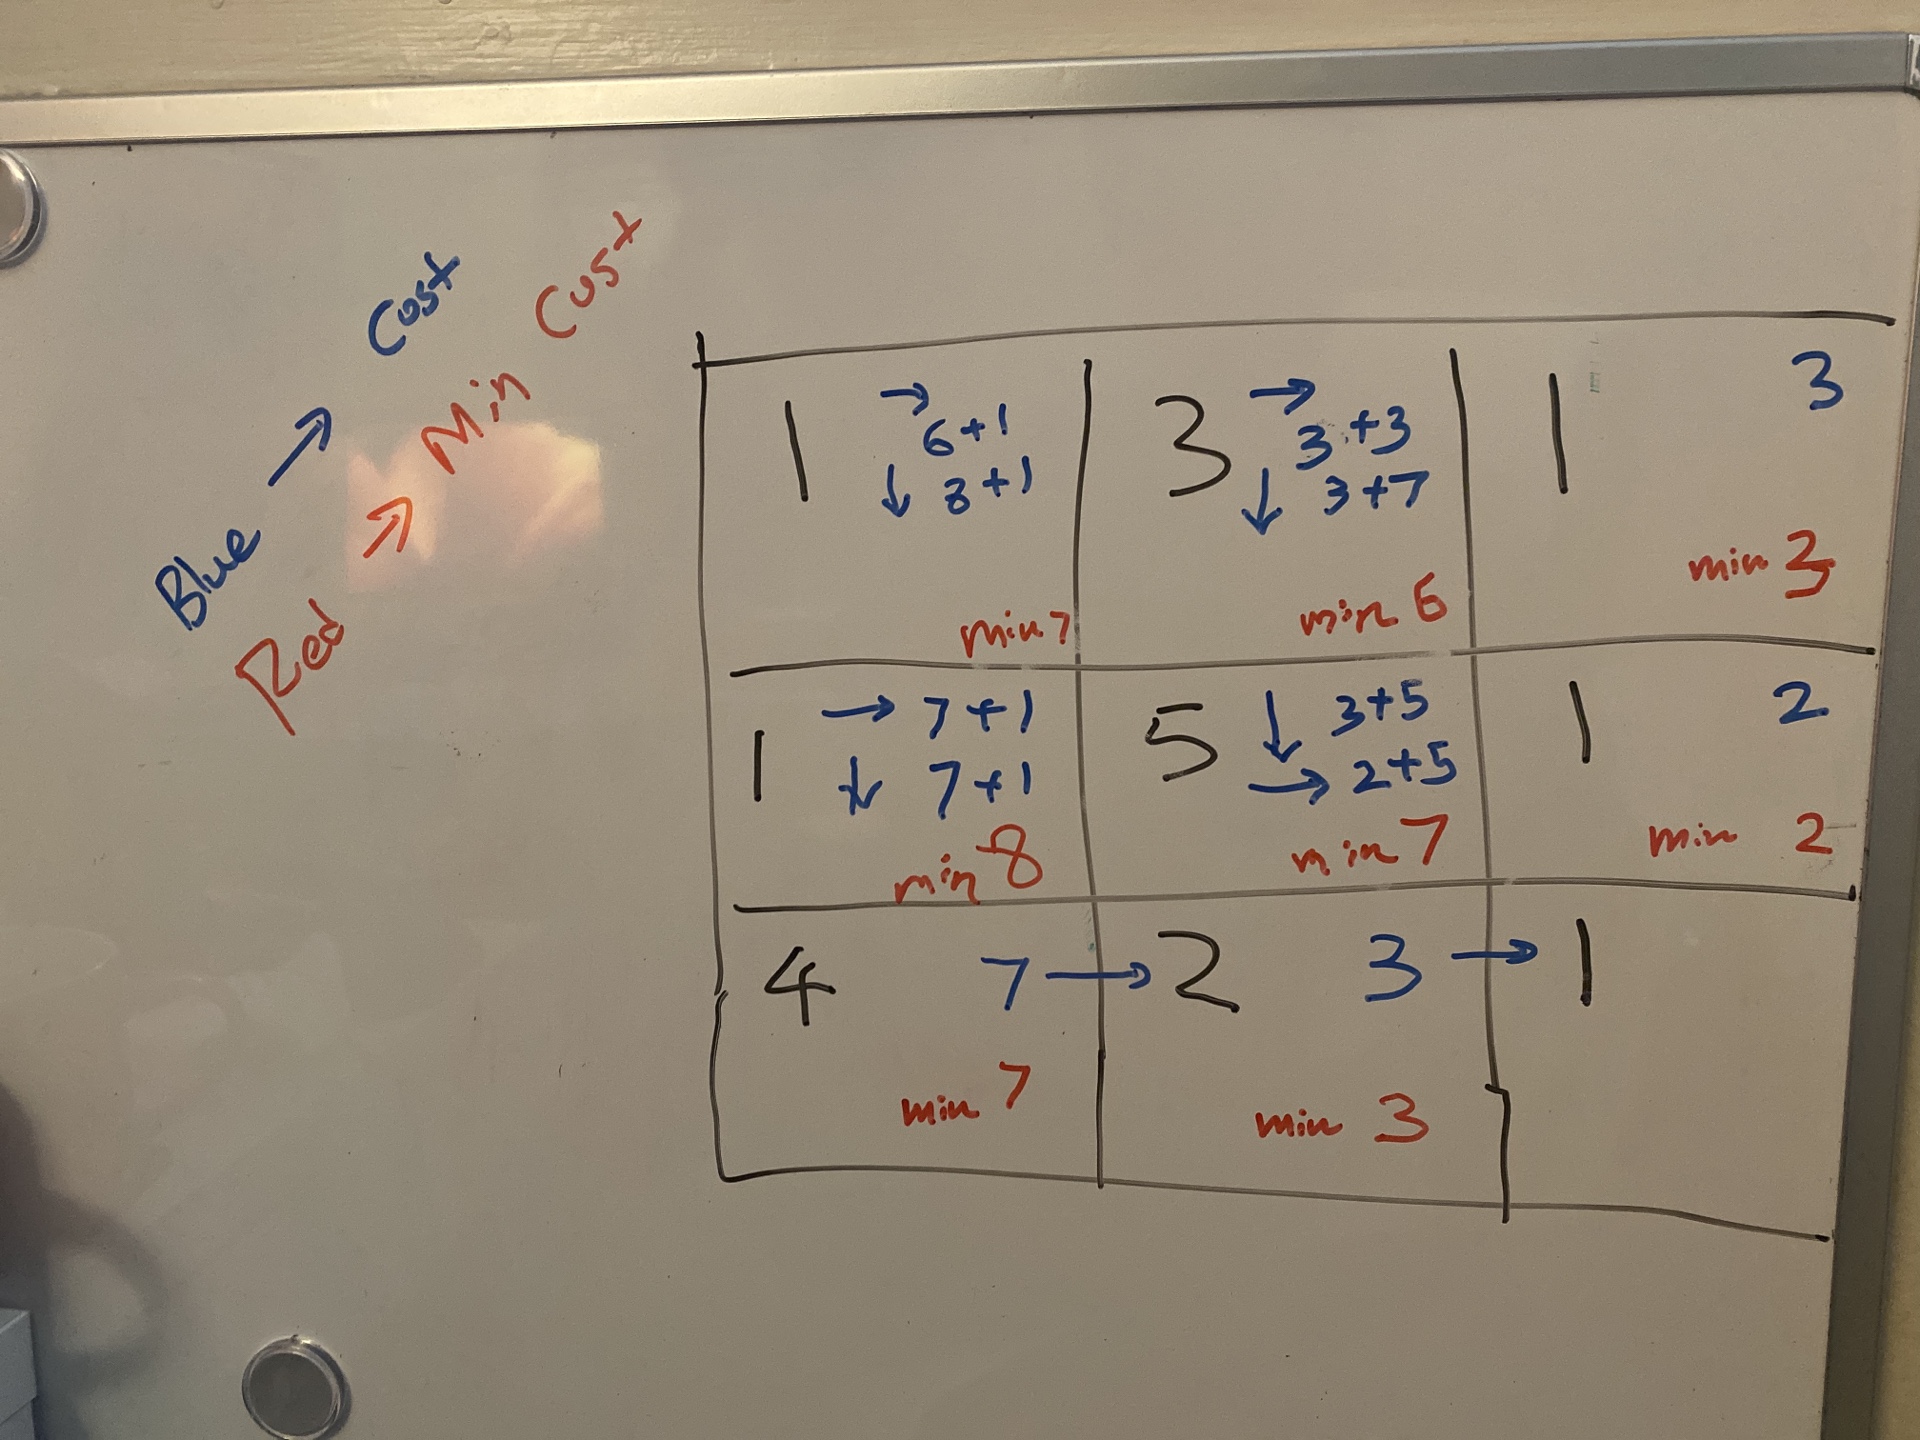 Blue → Cost
Red → Min Cost
1 → 6+1
↓ 8+1
min 7
3 → 3+3
↓ 3+7
min 6
1 3
min 3
1 → 7+1
↓ 7+1
min 8
5 ↓ 3+5
→ 2+5
min 7
1 2
min 2
4 7 →
min 7
2 3 →
min 3
1